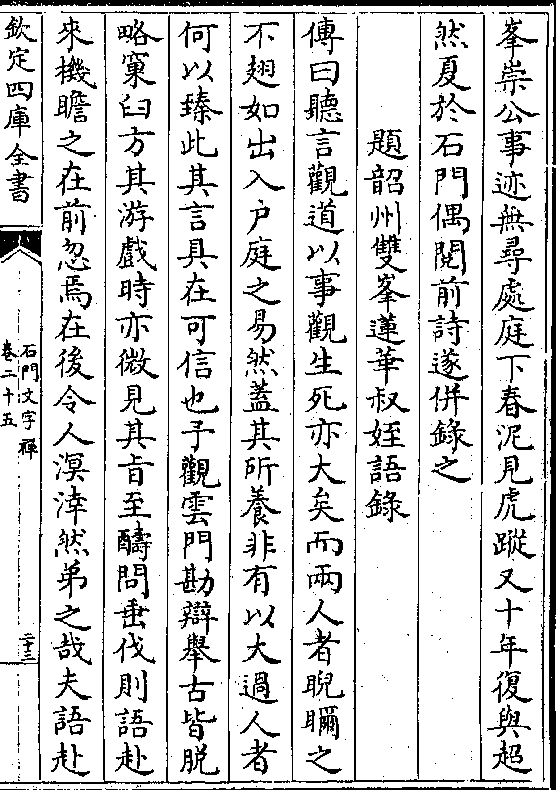 峯崇公事迹無尋處庭下春泥見虎蹤又十年復與超
然夏於石門偶閱前詩遂併錄之
題韶州雙峯蓮華叔姪語錄
傳曰聽言觀道以事觀生死亦大矣而兩人者睨眲之
不翅如出入户庭之易然蓋其所養非有以大過人者
何以臻此其言具在可信也予觀雲門勘辯舉古皆脱
略窠臼方其游戲時亦微見其旨至醻問垂伐則語赴
來機瞻之在前忽焉在後令人溟涬然弟之哉夫語赴
欽定四庫全書
石門文字禪
卷二十五
二十三